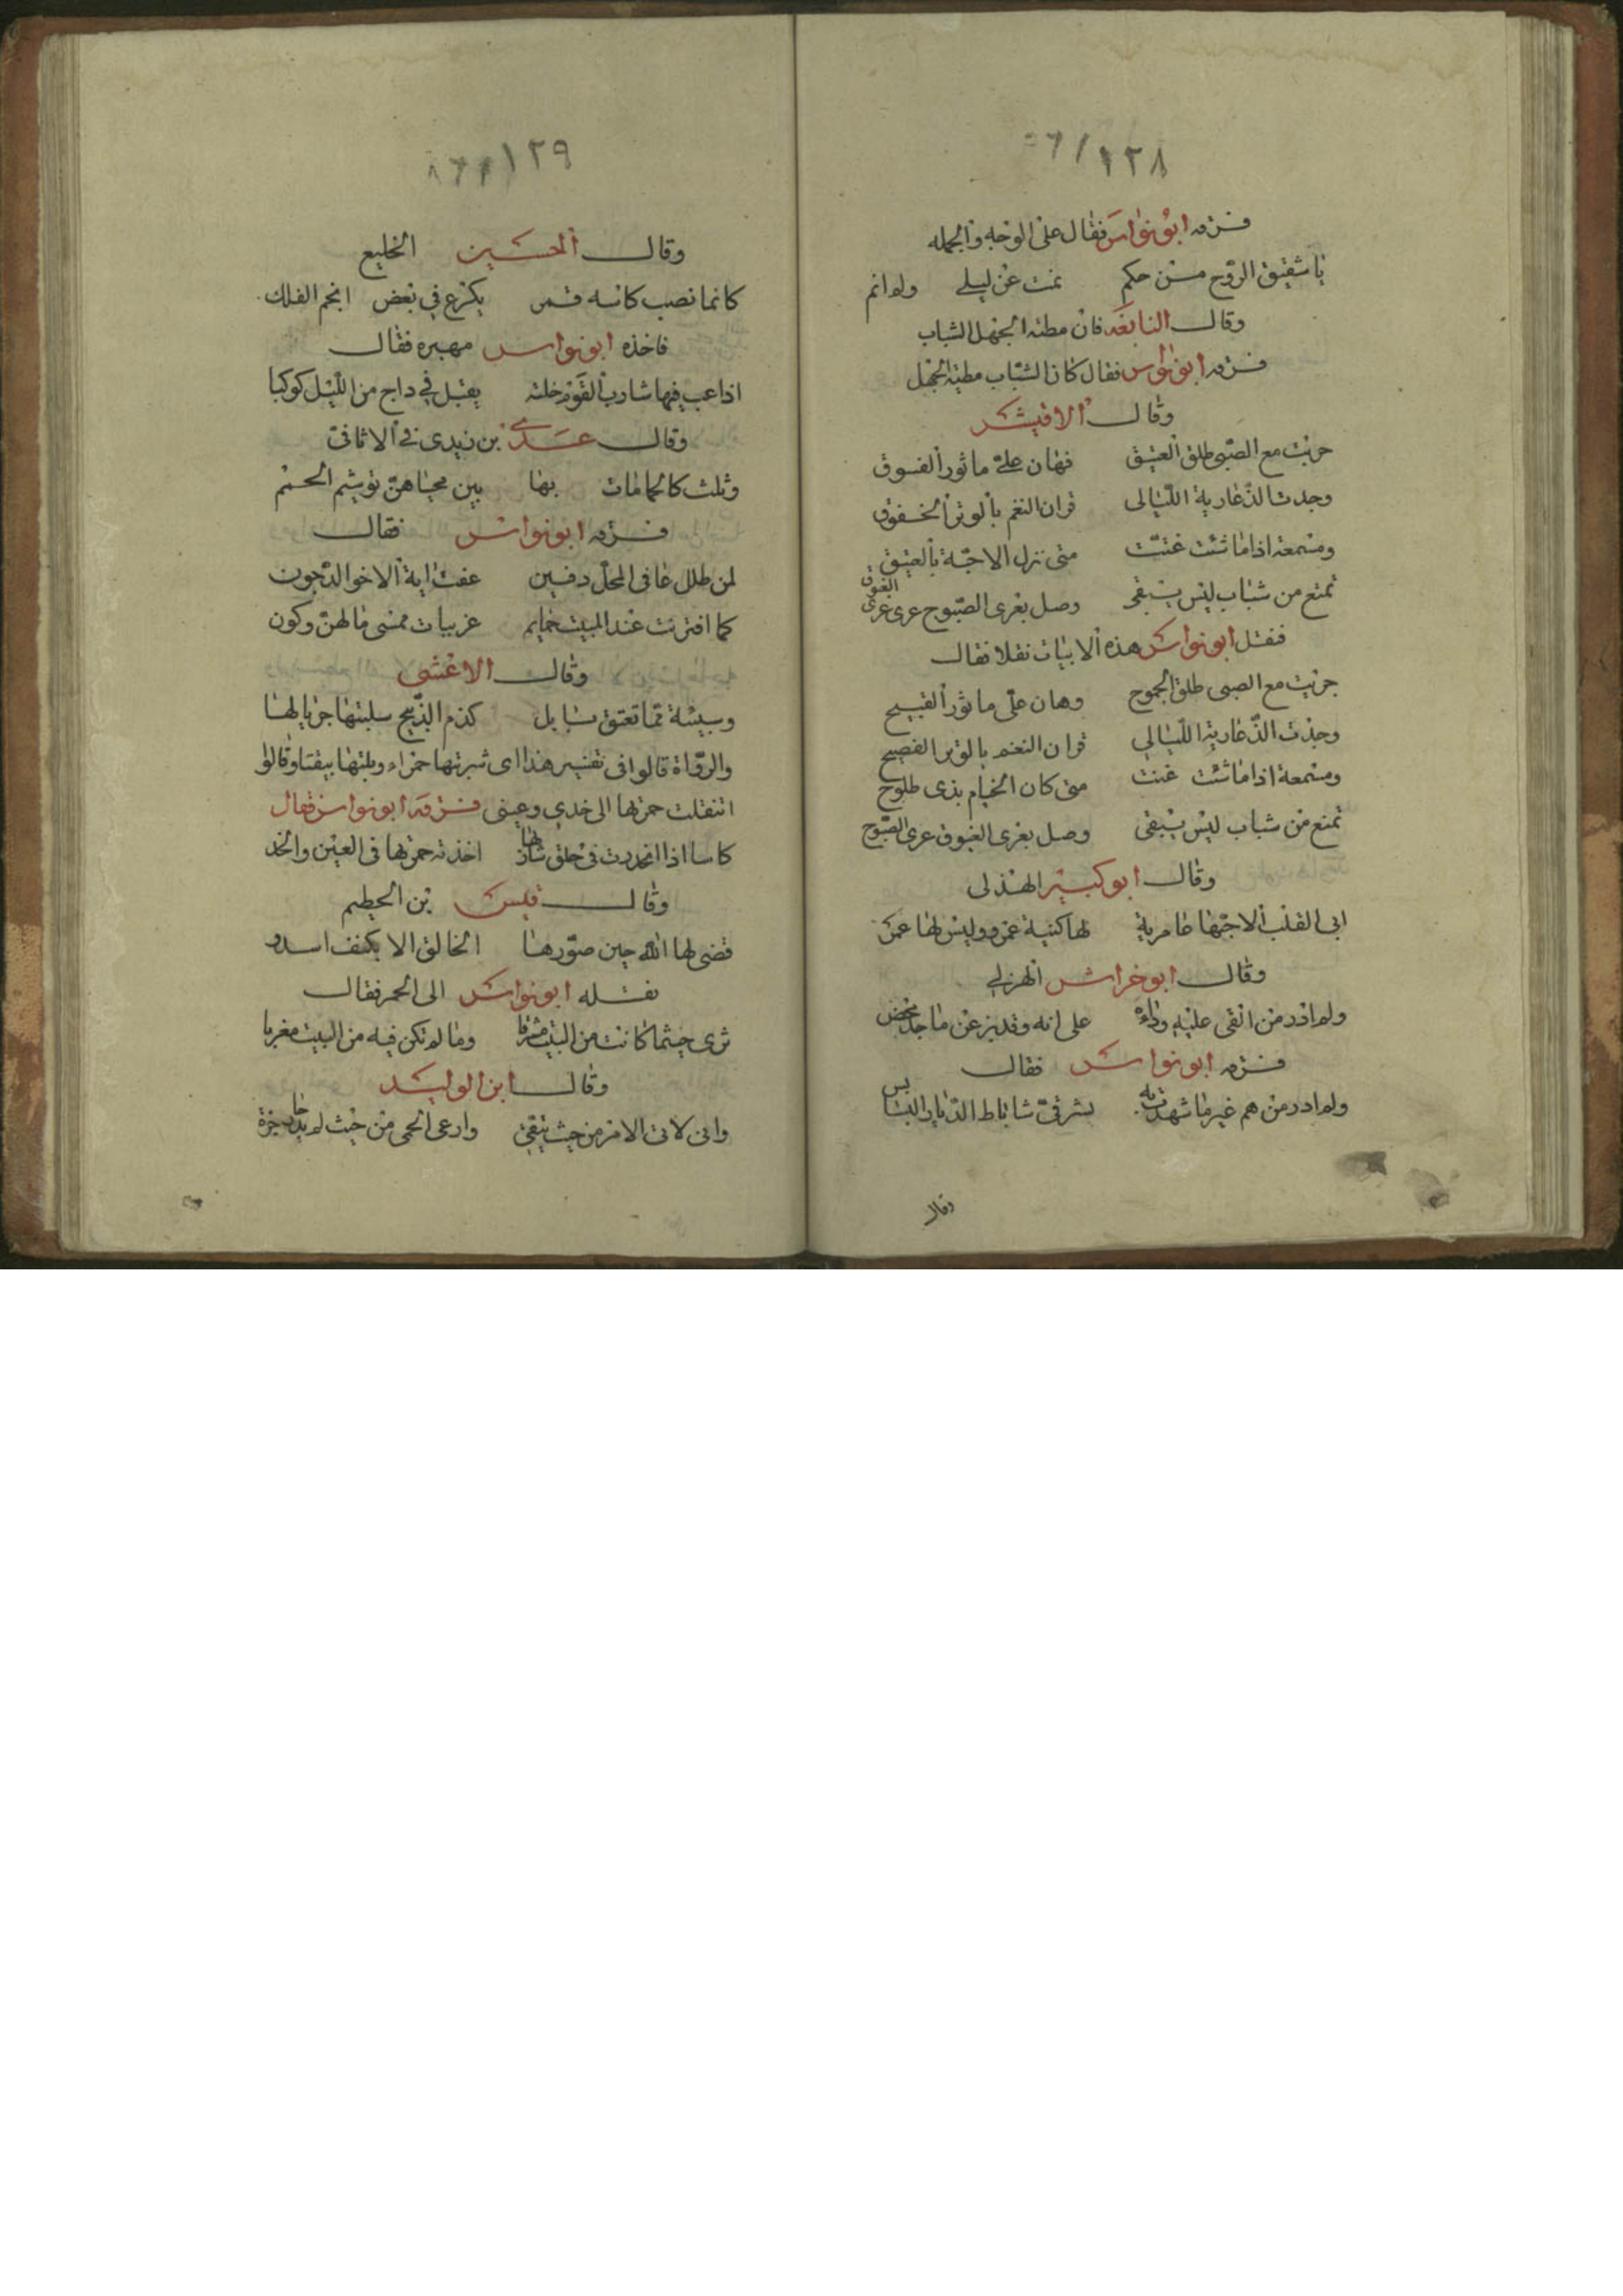 ١٢٨
فسرقه ابو نواس فقال على الوجه والجمله
يا شقيق الروح من حكم نمت عن ليلي ولم انم
وقال النابغه فان مطنه الجهل الشباب
فسرقه ابو نواس فقال كان الشباب مطية الجهل
وقال الاقيشر
جريت مع الصبى طلق العتيق فهان علي ماثور الفسوق
وجدت الذ عارية الليالى قران النغم بالوتر الخفوق
ومسمعة اذا ما شئت غنت متى نزل الاحبة بالعتيق
تمتع من شباب ليس يبقى وصل بعرى الصبوح عرى الغبوق
فنقل ابو نواس هذه الابيات نقلا فقال
جريت مع الصبى طلق الجموح وهان على ماثور القبيح
وجدت الذ عارية الليالي قران النغم بالوتر الفصيح
ومسمعة اذا ما شئت غنت متى كان الخيام بذى طلوح
تمتع من شباب ليس يبقى وصل بعرى الغبوق عرى الصبوح
وقال ابو كبير الهذلى
ابى القلب الا حبها عامرية لها كنية عمرو وليس لها عمرو
وقال ابو خراش الهزلي
ولم ادر من القى عليه رداءه على انه وقد بز عن ماجد محض
فسرقه ابو نواس فقال
ولم ادر من هم غير ما شهدت به بشرقى ساباط الديار البسابس
وقال
١٢٩
وقال الحسين الخليع
كانما نصب كاسه قمر يكرع في بعض انجم الفلك
فاخذه ابو نواس مهبره فقال
اذا عب فيها شارب القوم خلته يقبل في داج من الليل كوكبا
وقال عدي بن زيدى فى الاثافى
وثلث كالحمامات بها بين محياهن توشيم الحمم
فسرقه ابو نواس فقال
لمن طلل عافى المحل دفين عفت ايه الا خوالد جون
كما اقترنت عند المبيت حمايم غريبات ممسى ما لهن وكون
وقال الاعشى
وسبيئة مما تعتق بابل كدم الذبيح سلبتها جريالها
والرواة قالوا فى تفسير هذا اى شربتها حمراء وبلتها بيضا وقالوا
انتقلت حمرتها الى خدي وعينى فسرقه ابو نواس فقال
كاسا اذا انحدرت فى حلق شاربها اخذته حمرتها فى العين والخد
وقال قيس بن الحطيم
قضى لها الله حين صورها الخالق الا يكنف اسدو
نقله ابو نواس الى الخمر فقال
ترى حيثما كانت من البيت مشرقا وما لم تكن فيه من البيت مغربا
وقال ابن الوليد
وانى لاتى الامر من حيث يتقى وارعى الحمى من حيث لم